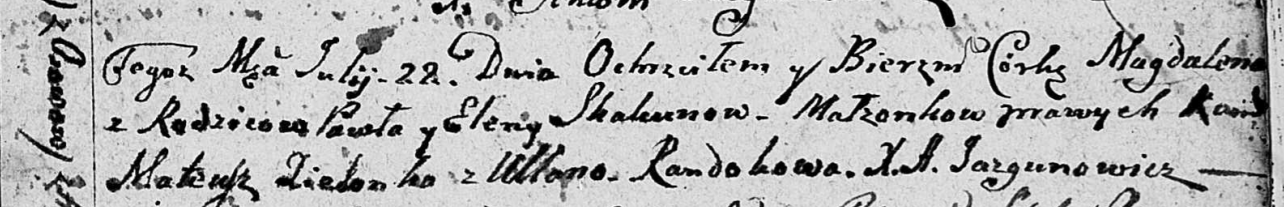 Tegoż Mca Julij. 22. Dnia Ochrzciłem y Bierzm Corkę Magdalenę
z Rodzicow Pawła y Eleny Skakunow. Małżonkow prawych Kum
Mateusz Zielonka z Ullano. Randokowa. X. A. Jazgunowicz